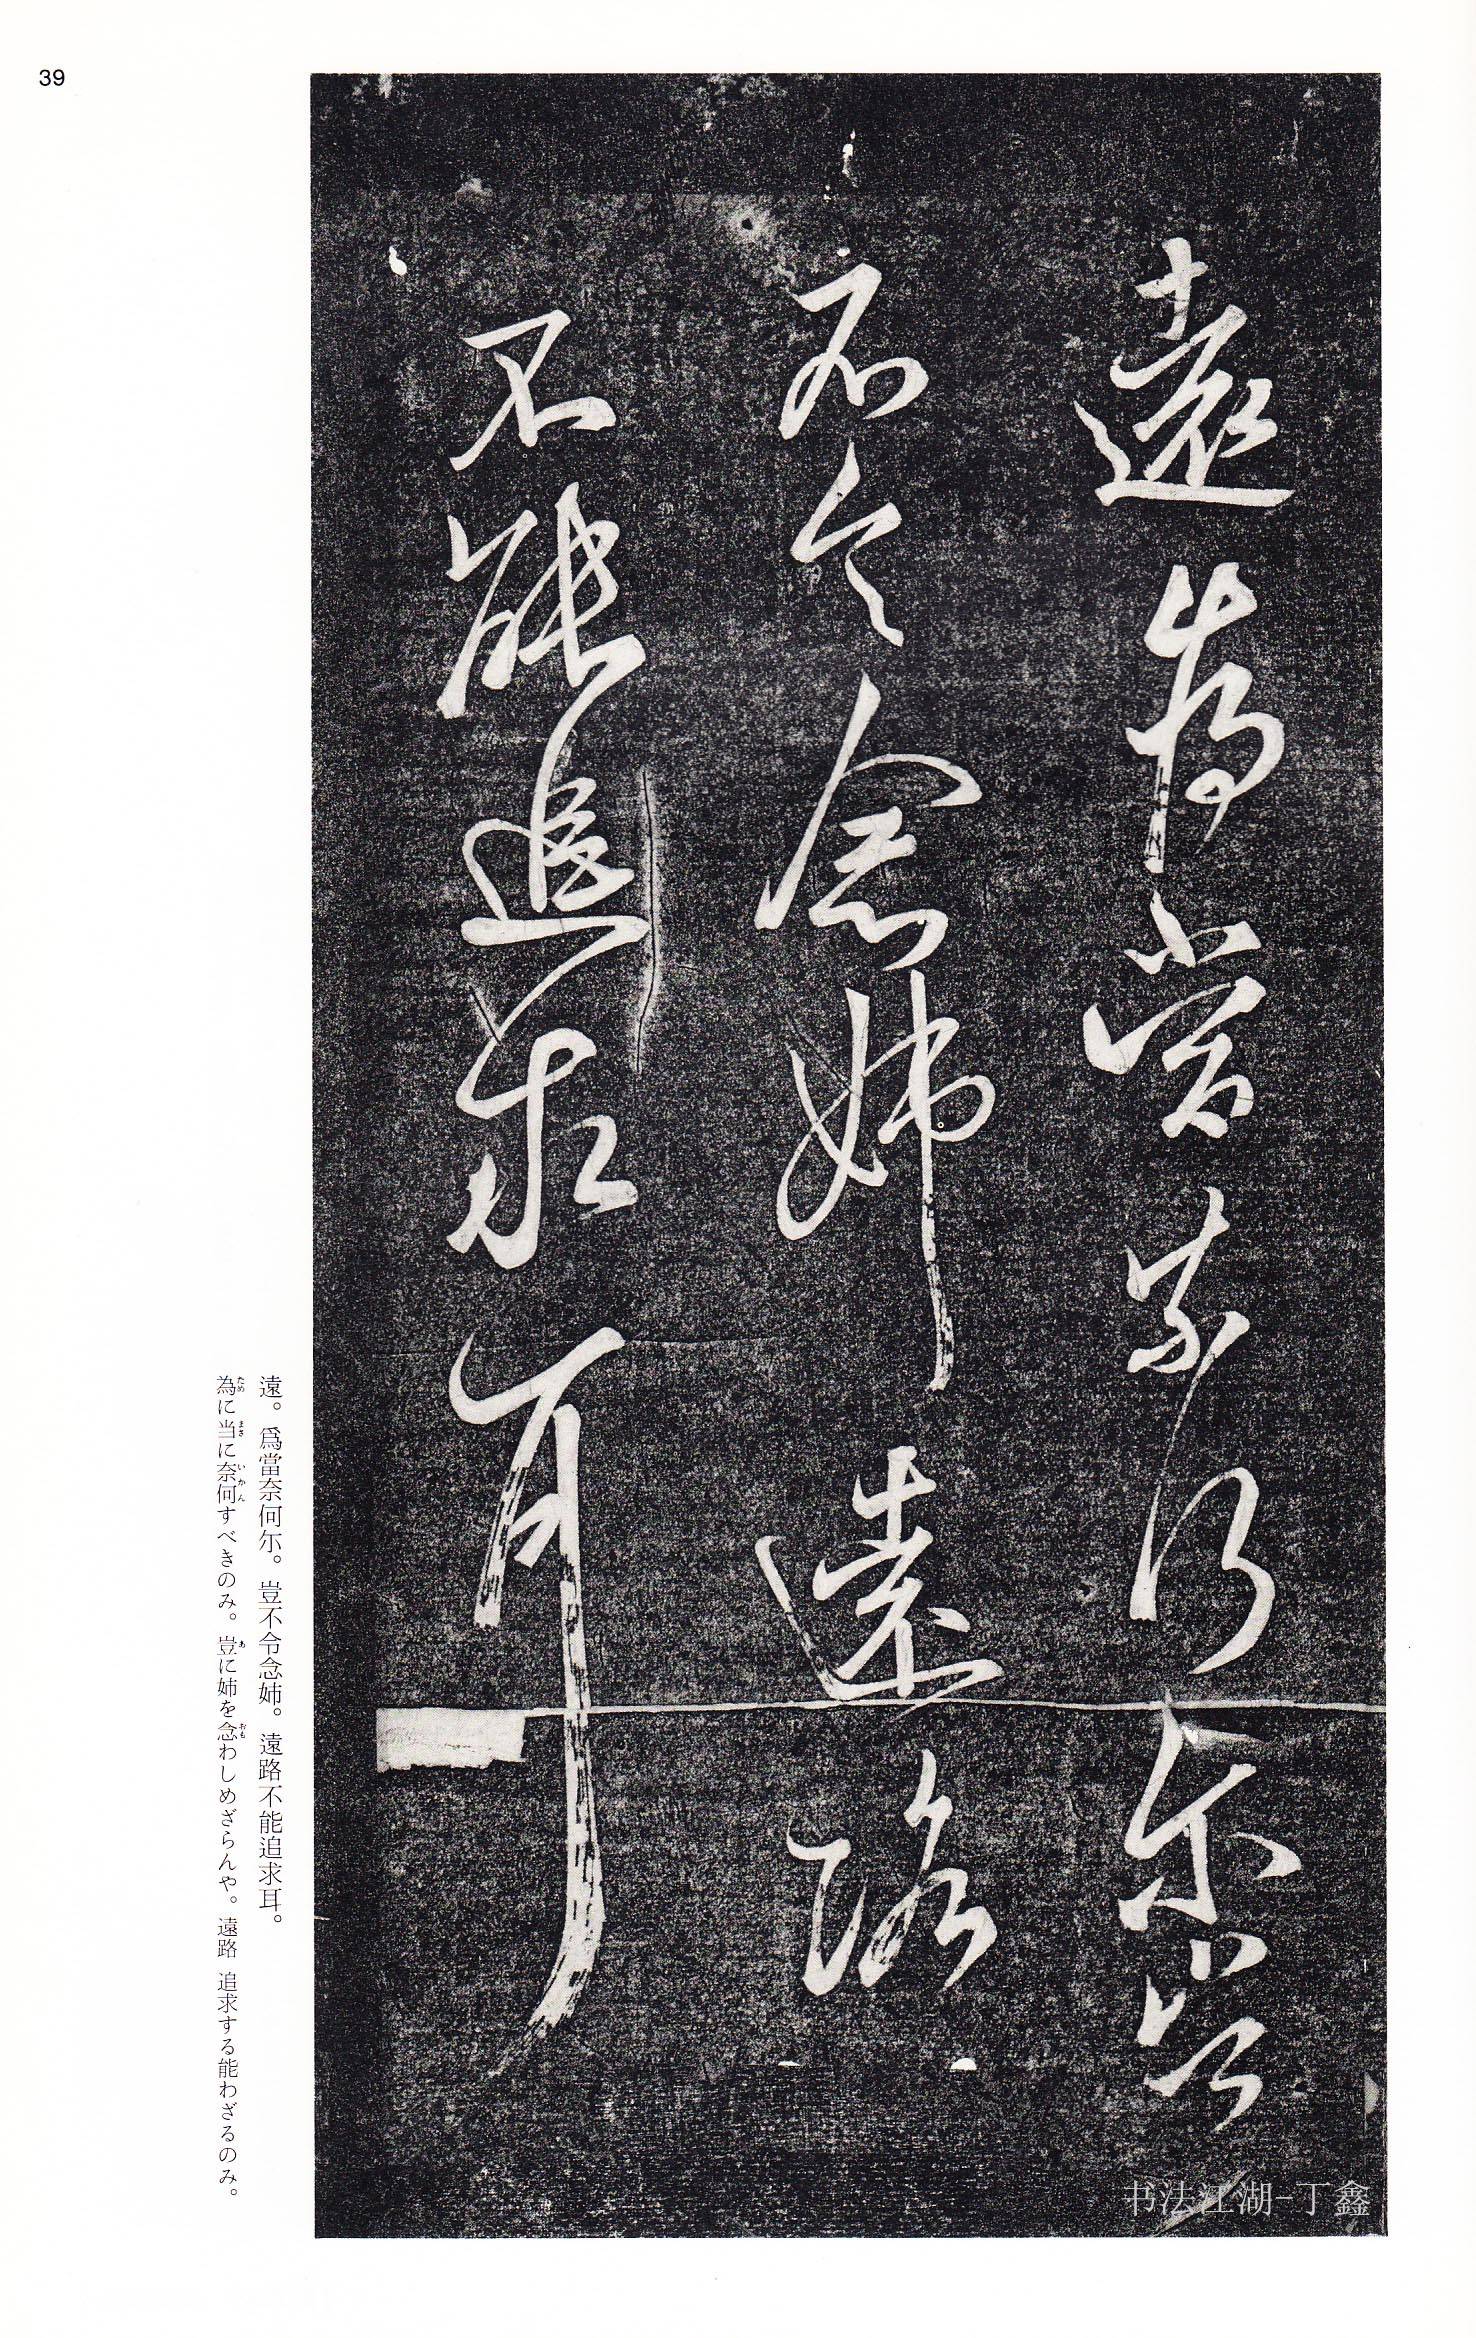 39
遠為當奈何尓豈
不令念姉遠路
不能追求耳
遠。爲當奈何尓。豈不令念姉。遠路不能追求耳。
為ために当まさに奈何いかんすべきのみ。豈あに姉を念おもわしめざらんや。遠路 追求する能わざるのみ。
书法江湖-丁鑫